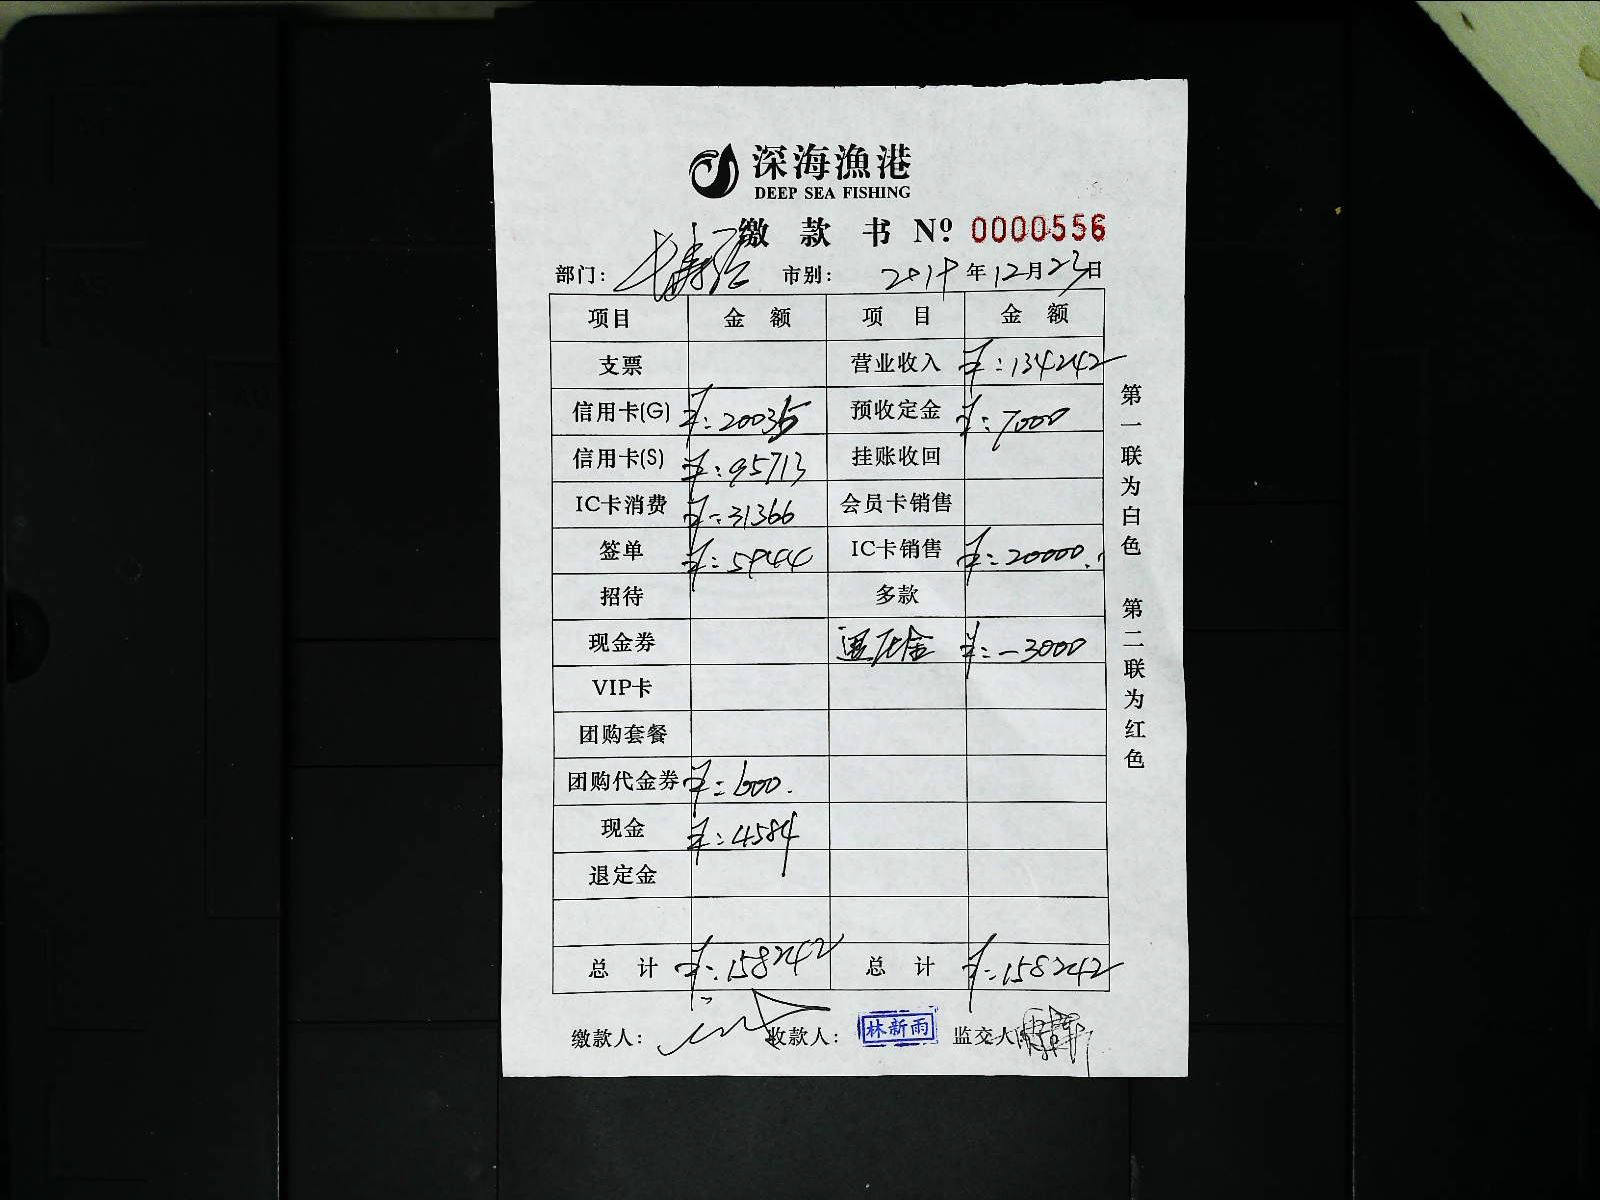 深海渔港
DEEP SEA FISHING
缴款书 Nº 0000556
部门：长寿路 市别： 2019年12月23日
项目 金额 项目 金额
支票 营业收入 ¥：134242
信用卡(G) ¥：20035 预收定金 ¥：7000
信用卡(S) ¥：95713 挂账收回
IC卡消费 ¥：31366 会员卡销售
签单 ¥：5944 IC卡销售 ¥：20000.
招待 多款
现金券 退定金 ¥：-3000
VIP卡
团购套餐
团购代金券 ¥：600.
现金 ¥：4584
退定金
总计 ¥：158242 总计 ¥：158242
缴款人： 收款人：林新雨 监交人
第一联为白色 第二联为红色